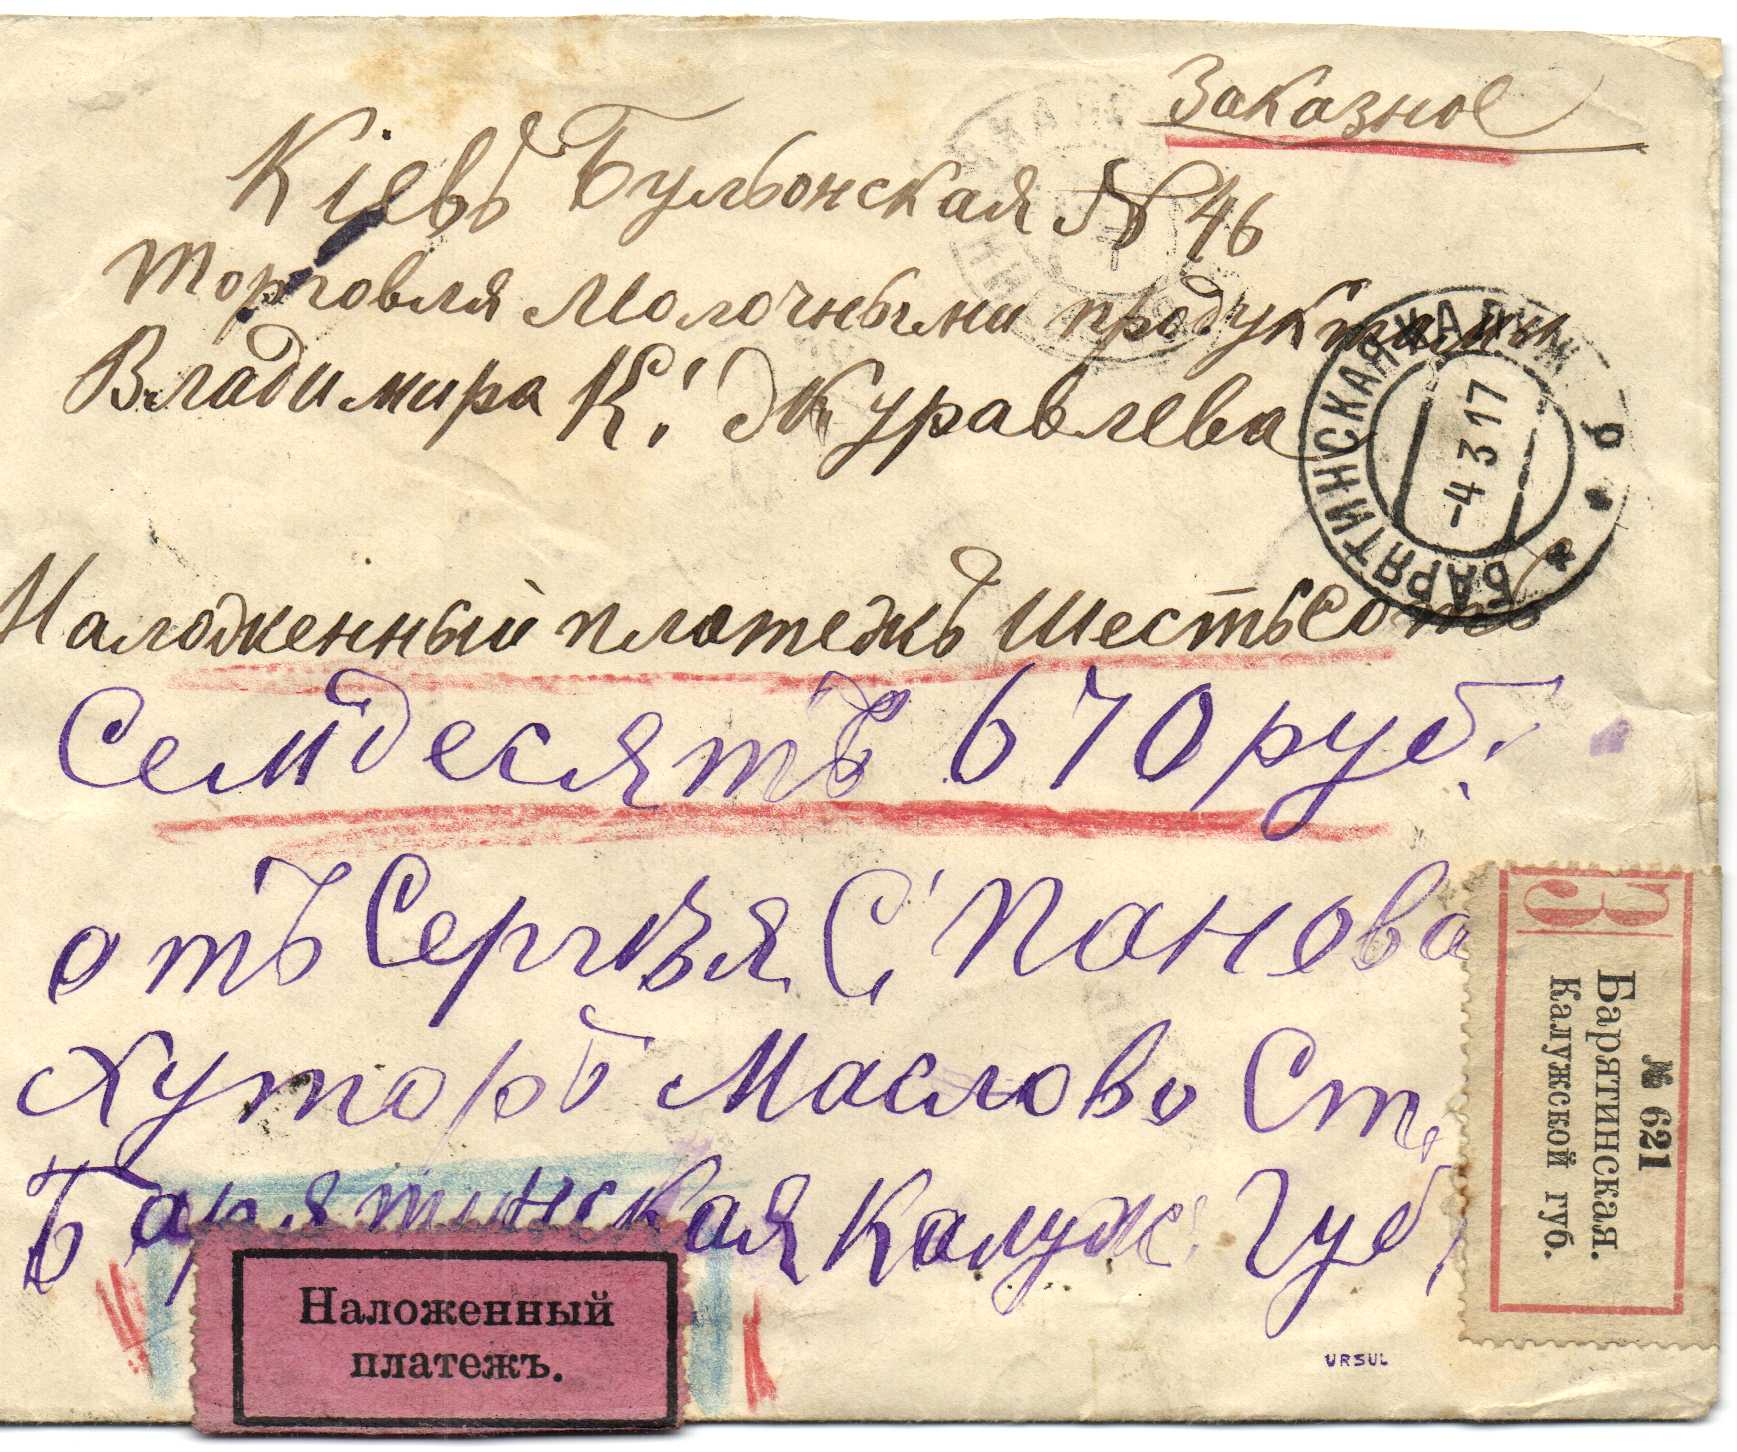 Заказное
Кіевъ Бульонская № 46
Торговля Молочными продуктами
Владимира К. Журавлева
БАРЯТИНСКАЯ КАЛУЖ
-4 3 17
Наложенный платежъ шестьсотъ
Семдесятъ 670 руб.
отъ Сергѣя С. Панова
Хуторъ Маслово Ст.
Барятинская Калуж. Губ.
З
№ 621
Барятинская.
Калужской губ.
Наложенный
платежъ.
URSUL